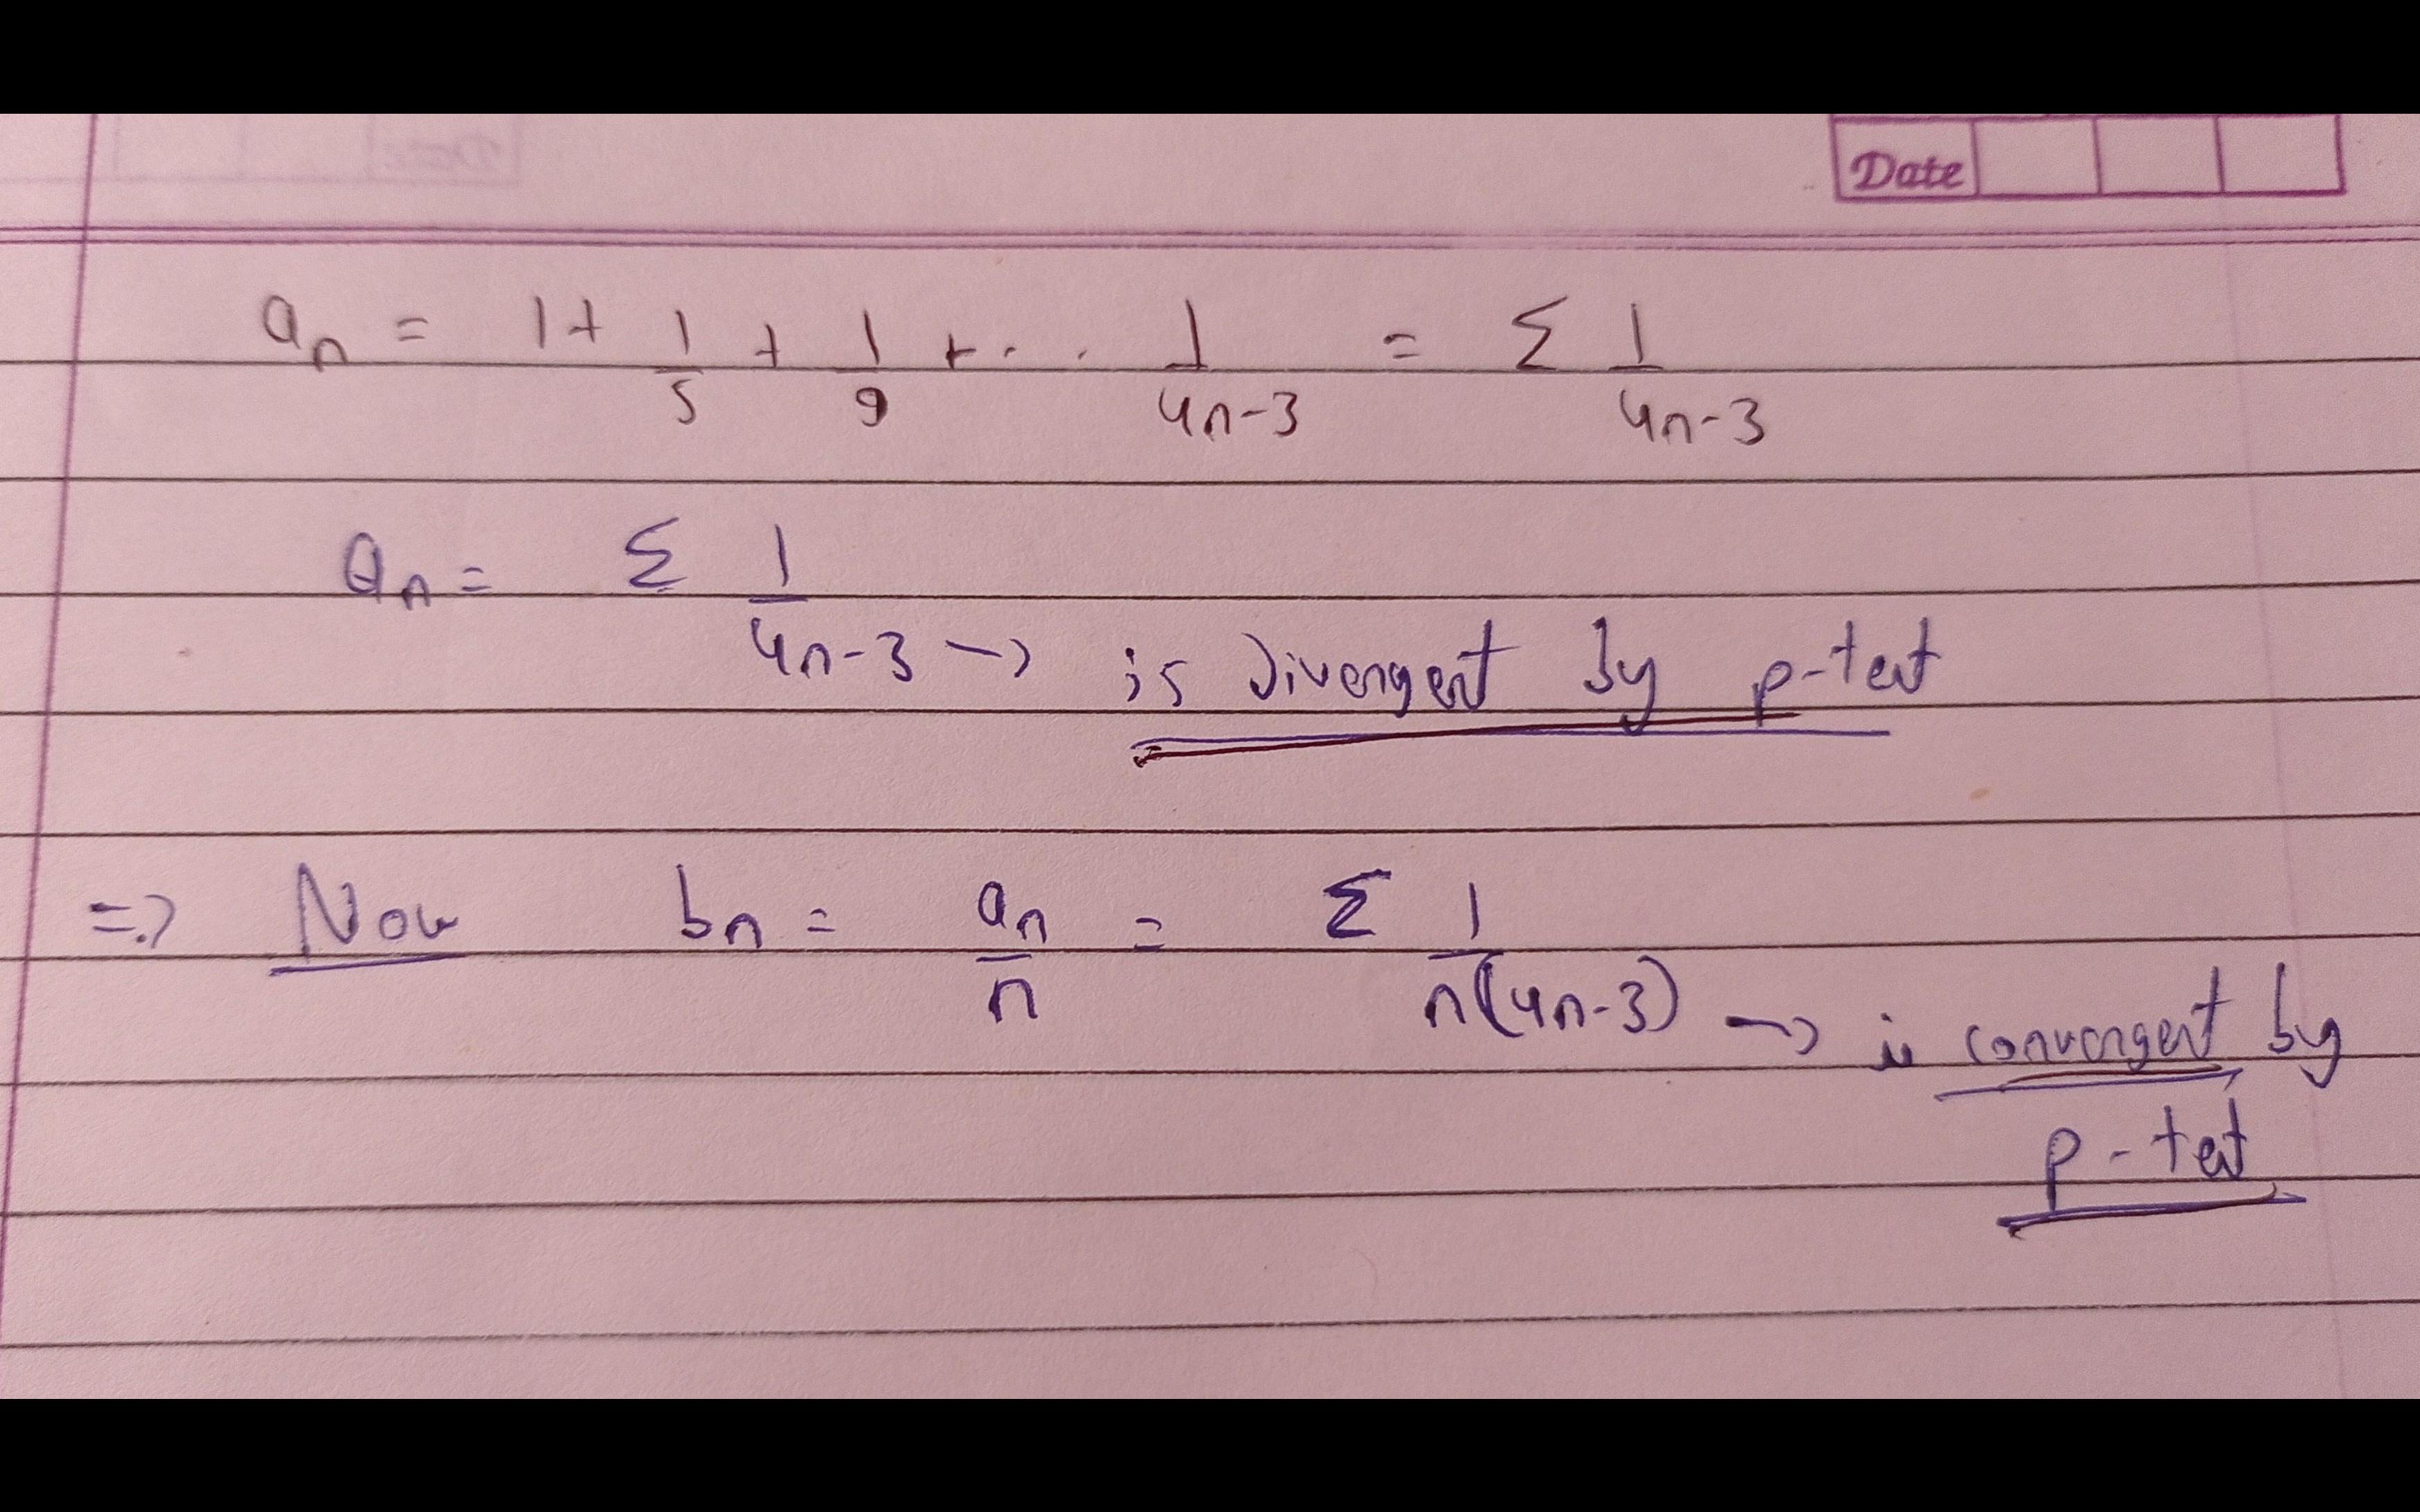 Date
a_n = 1 + 1/5 + 1/9 + . . 1/4n-3 = Σ 1/4n-3
a_n = Σ 1/4n-3 → is divergent by p-test
=> Now b_n = a_n/n = Σ 1/n(4n-3) → is convergent by
p-test